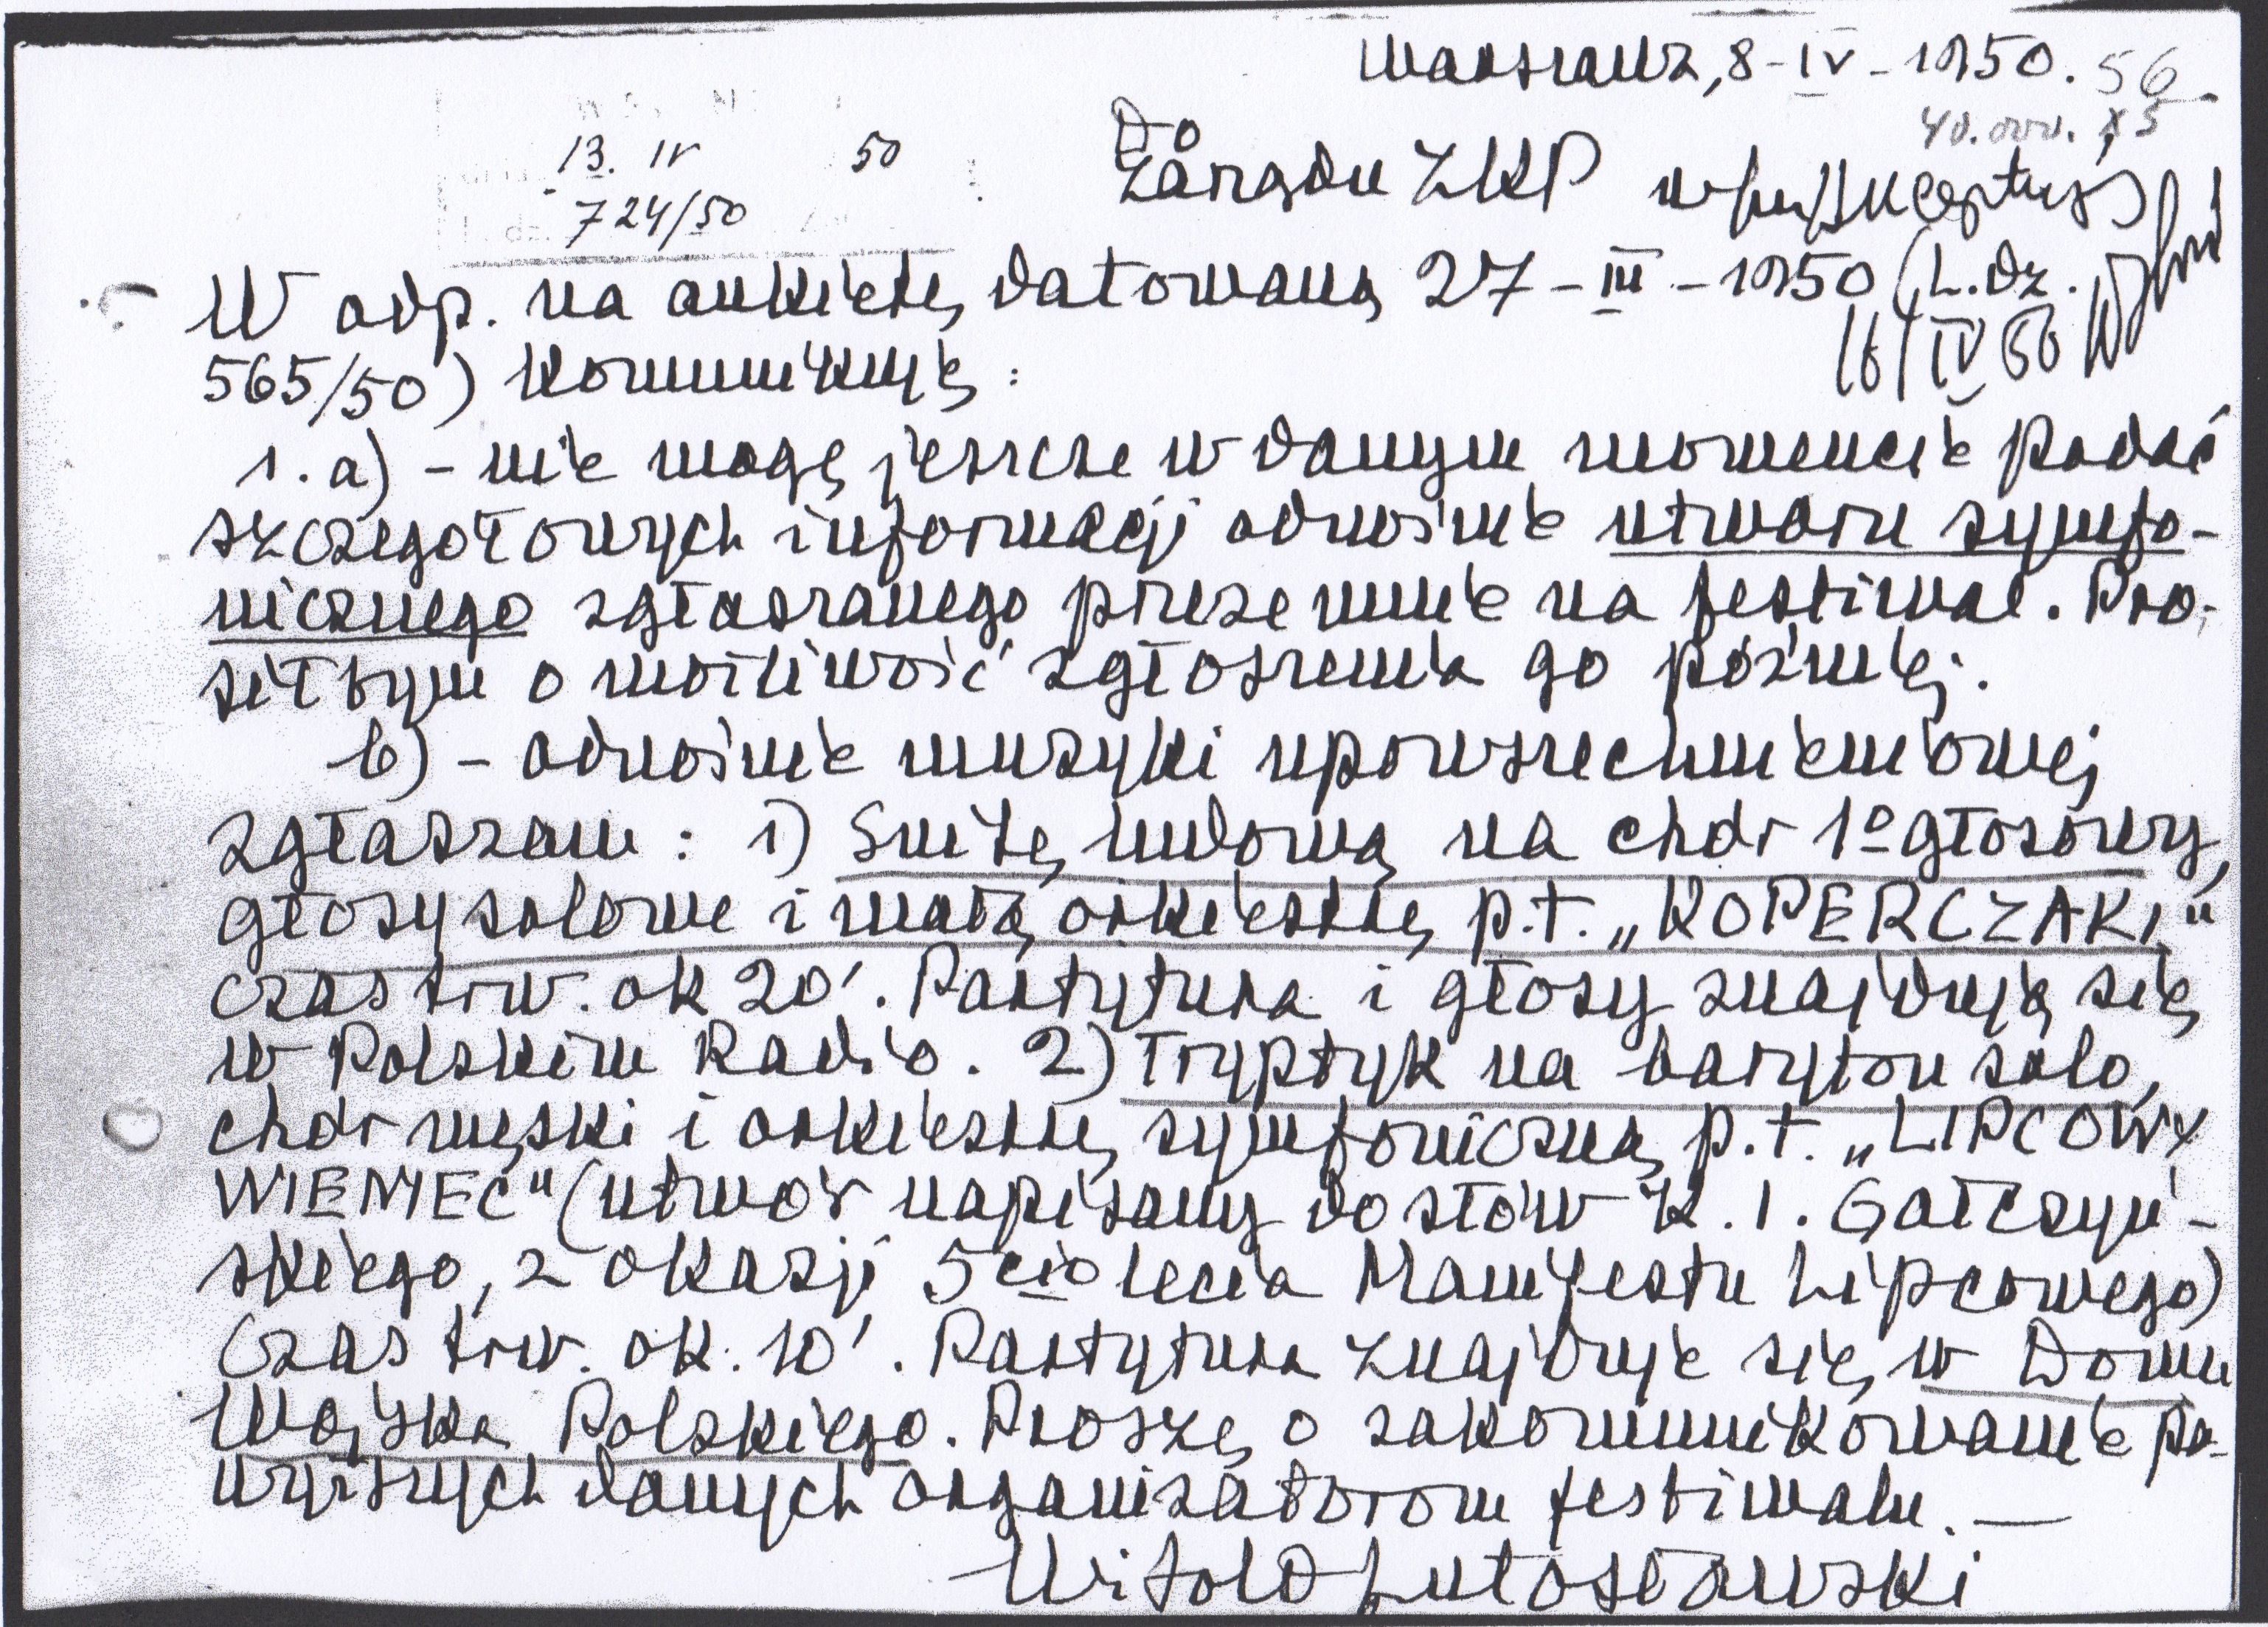 Warszawa, 8-IV-1950. 56.
40.000. x 5
13. IV 50
724/50
Do
Zarządu ZKP
W odp. na ankietę datowaną 27-III-1950 (L.dz.
16/IV 50
565/50) komunikuję:
1. a) - nie mogę jeszcze w danym momencie podać
szczegółowych informacji odnośnie utworu symfo-
nicznego zgłaszanego przeze mnie na festiwal. Pro-
siłbym o możliwość zgłoszenia go później.
b) - odnośnie muzyki upowszechnieniowej
zgłaszam: 1) Suitę ludową na chór 1º głosowy,
głosy solowe i małą orkiestrę p.t. „KOPERCZAKI"
czas trw. ok 20'. Partytura i głosy znajdują się
w Polskim Radio. 2) Tryptyk na baryton solo,
chór męski i orkiestrę symfoniczną p.t. „LIPCOWY
WIENIEC" (utwór napisany do słów K. I. Gałczyń-
skiego, z okazji 5cio lecia Manifestu Lipcowego)
Czas trw. ok. 10'. Partytura znajduje się w Domu
Wojska Polskiego. Proszę o zakomunikowanie po-
wyższych danych organizatorom festiwalu. —
Witold Lutosławski